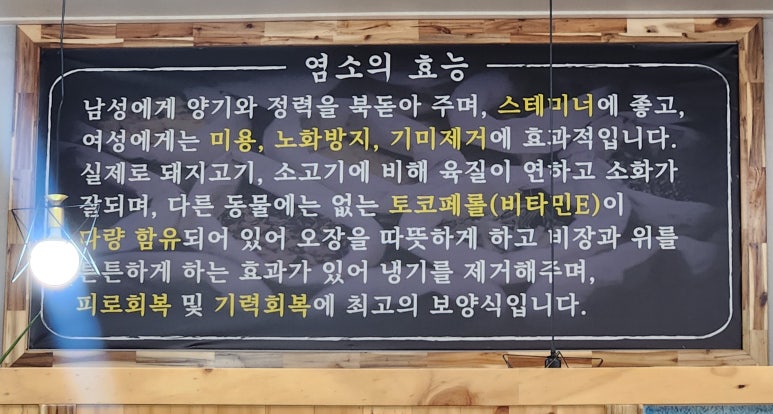 염소의 효능
남성에게 양기와 정력을 북돋아 주며, 스테미너에 좋고,
여성에게는 미용, 노화방지, 기미제거에 효과적입니다.
실제로 돼지고기, 소고기에 비해 육질이 연하고 소화가
잘되며, 다른 동물에는 없는 토코페롤(비타민E)이
다량 함유되어 있어 오장을 따뜻하게 하고 비장과 위를
튼튼하게 하는 효과가 있어 냉기를 제거해주며,
피로회복 및 기력회복에 최고의 보양식입니다.